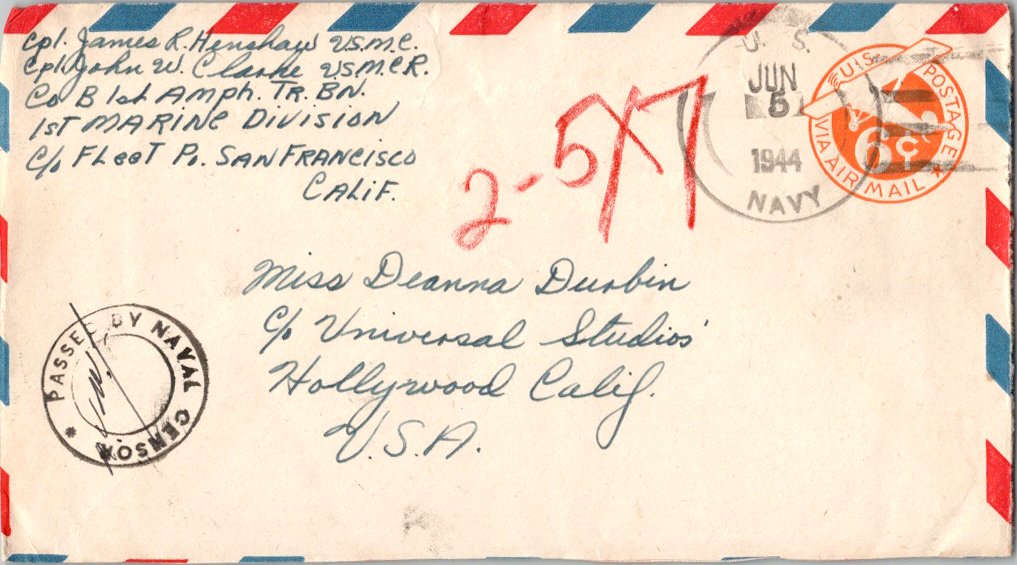 Cpl. James R. Henshaw U.S.M.C.
Cpl. John W. Clarke U.S.M.C.R.
Co B 1st Amph. Tr. Bn.
1st Marine Division
c/o Fleet Po. San Francisco
Calif.
2-5X7
U. S.
JUN
5
1944
NAVY
U.S. POSTAGE
6¢
VIA AIR MAIL
Miss Deanna Durbin
c/o Universal Studios
Hollywood Calif.
U.S.A.
PASSED BY NAVAL CENSOR